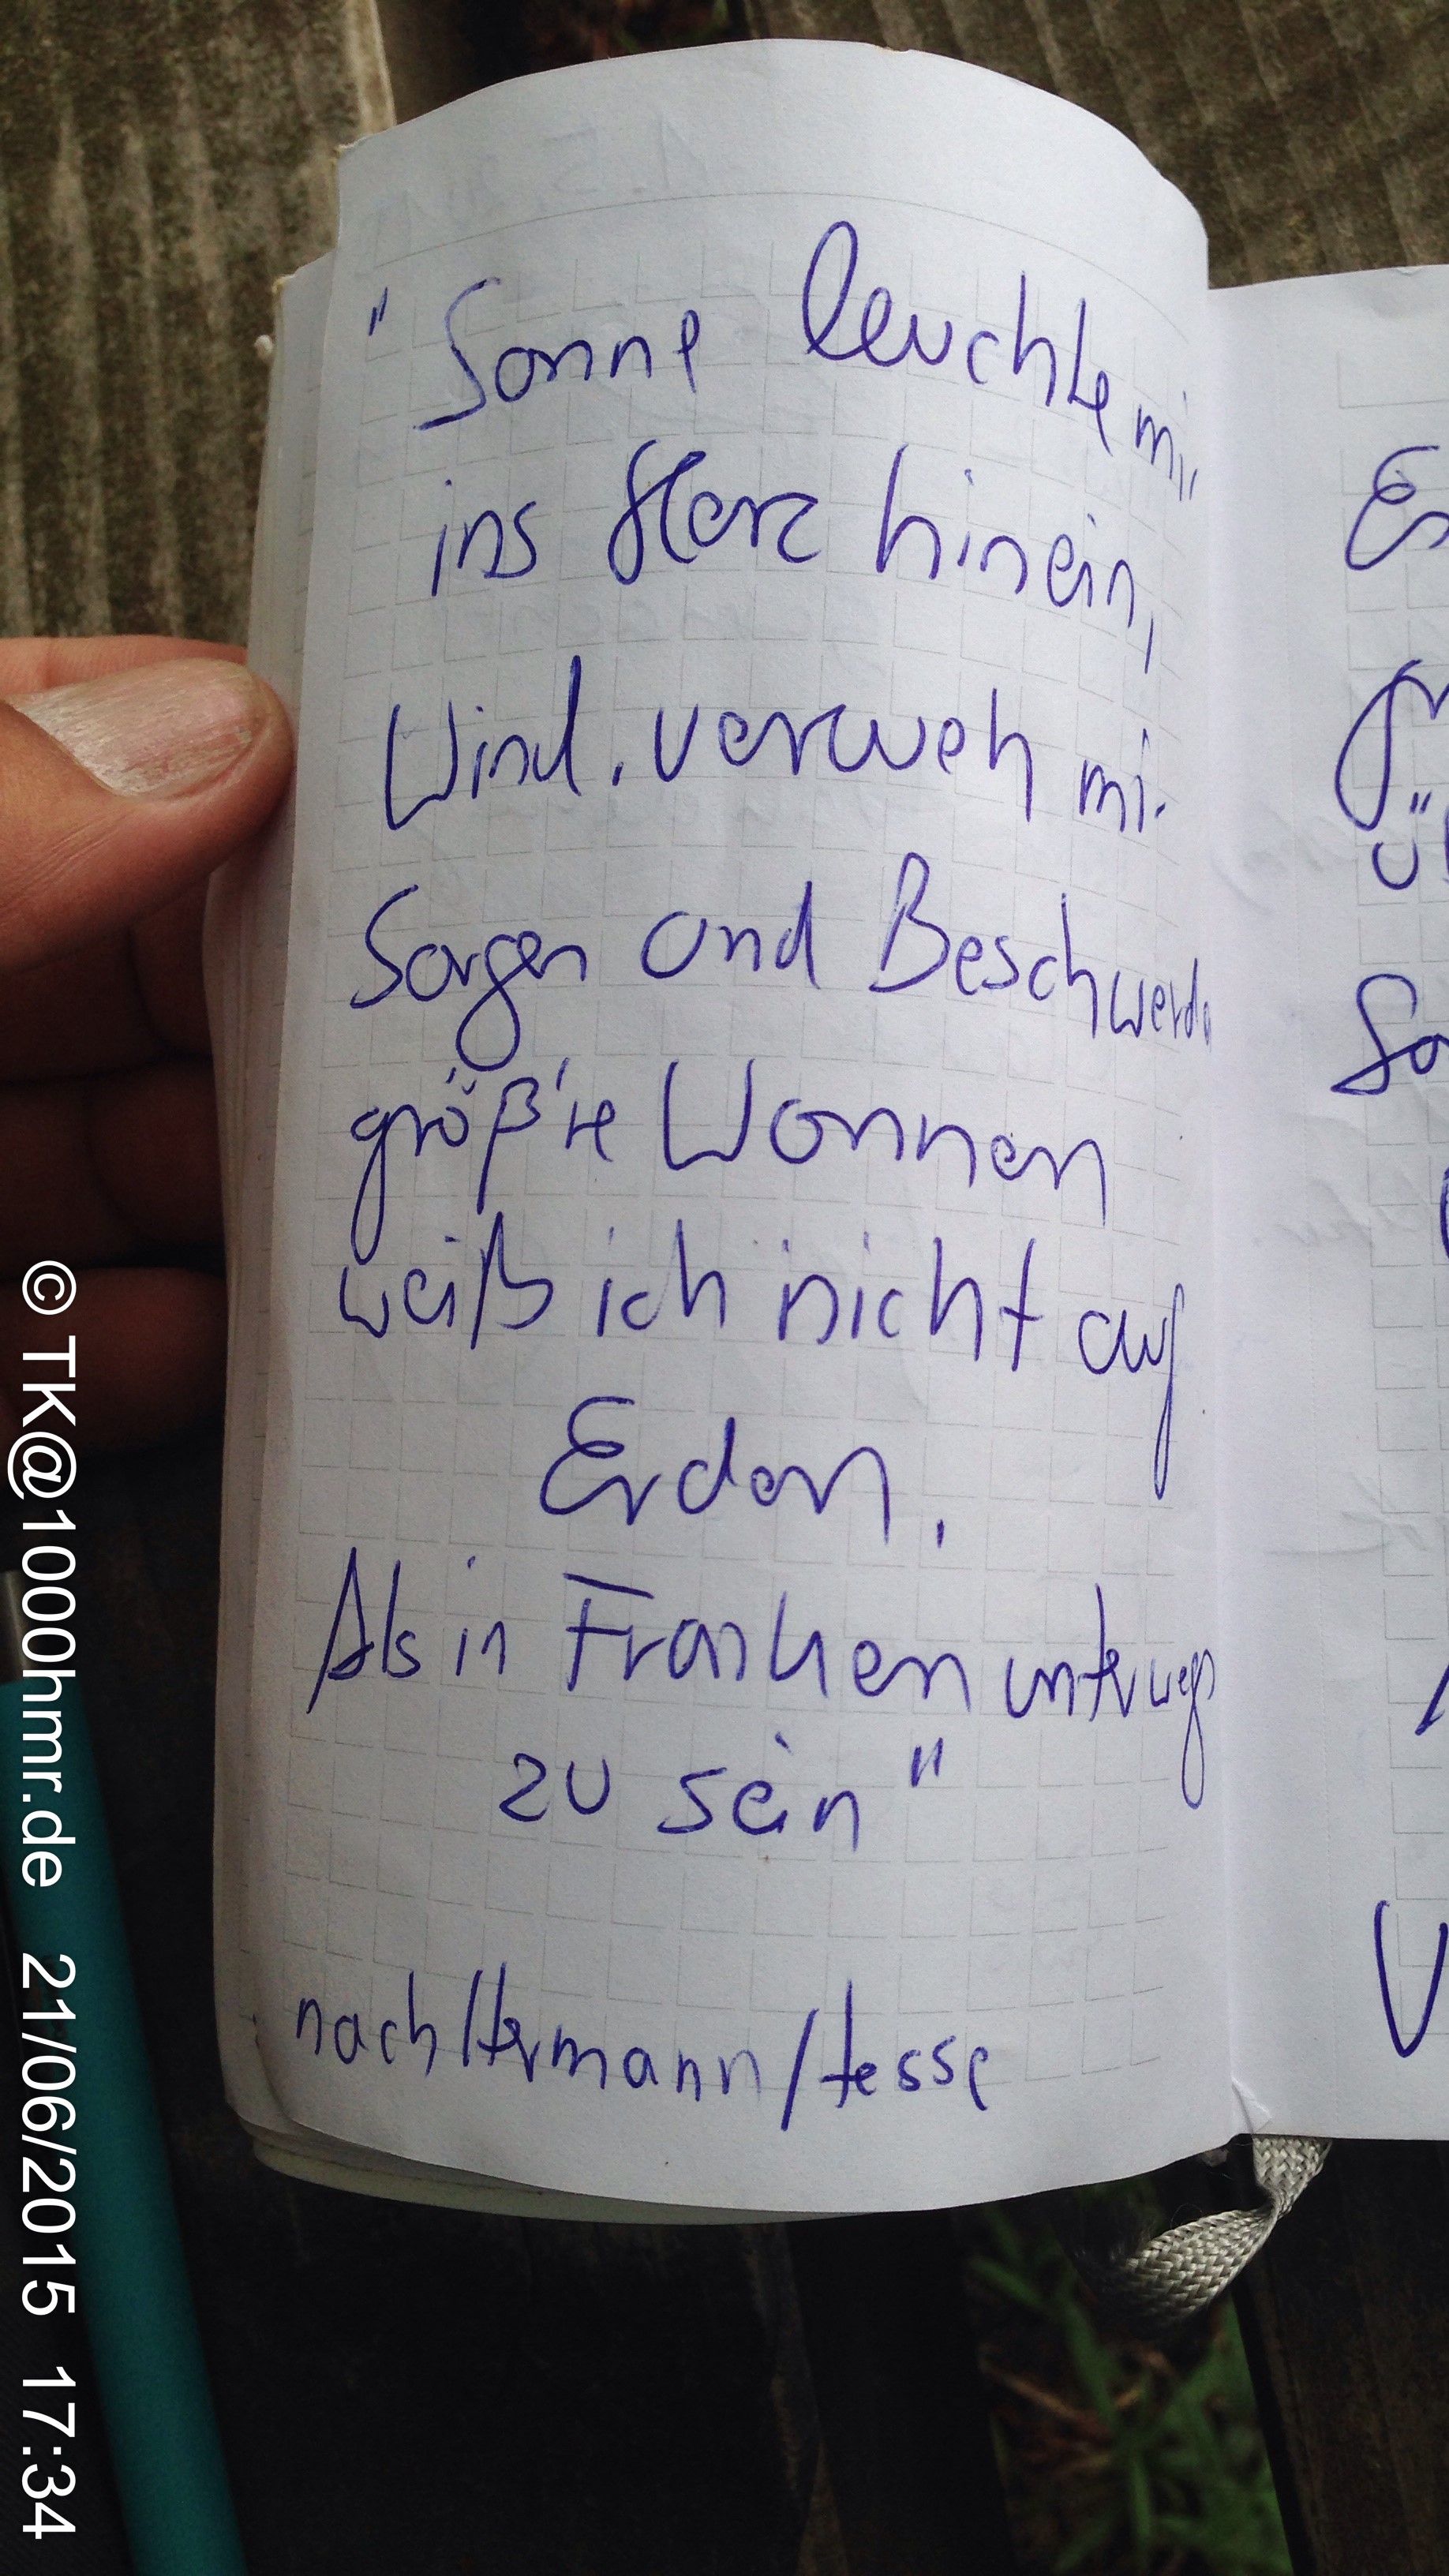 "Sonne leuchte mir
ins Herz hinein,
Wind, verweh mir
Sorgen und Beschwerde
größ're Wonnen
weiß ich nicht auf
Erden,
Als in Franken unterwegs
zu sein"
nach Hermann Hesse
© TK@1000hmr.de 21/06/2015 17:34